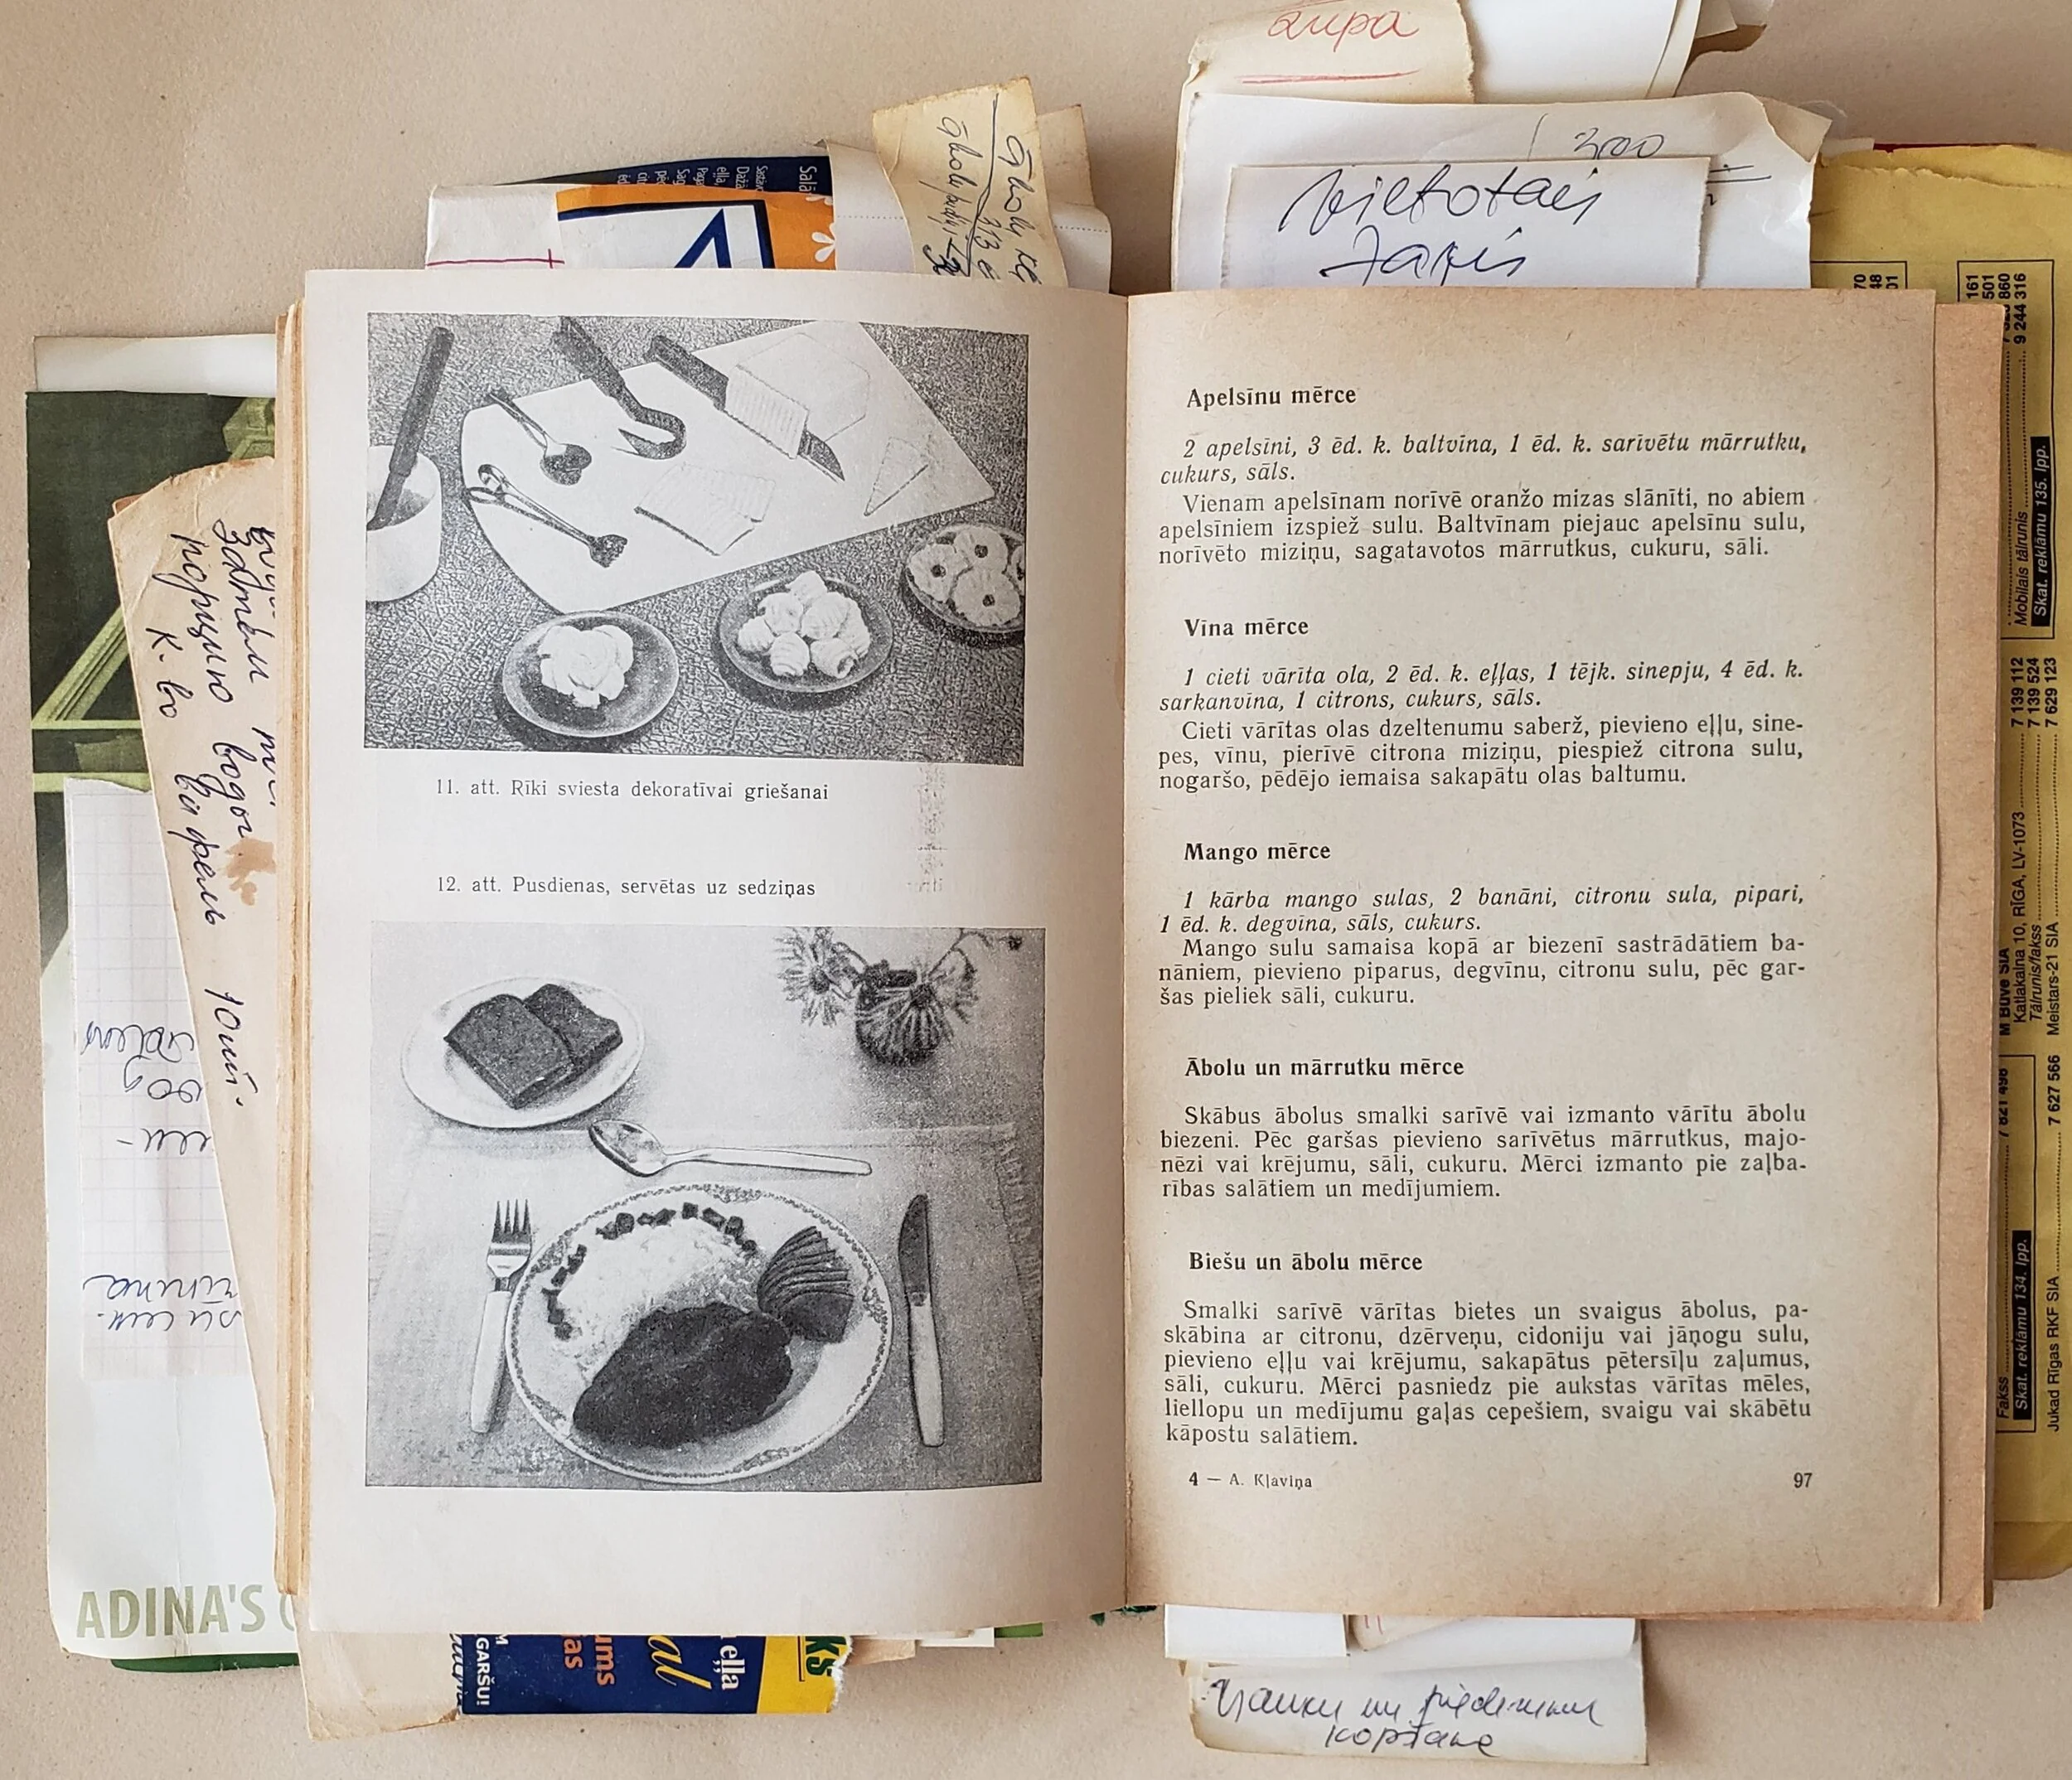 zupa
300
vietotais
11. att. Rīki sviesta dekoratīvai griešanai
12. att. Pusdienas, servētas uz sedziņas
Apelsīnu mērce
2 apelsīni, 3 ēd. k. baltvīna, 1 ēd. k. sarīvētu mārrutku,
cukurs, sāls.
Vienam apelsīnam norīvē oranžo mizas slānīti, no abiem
apelsīniem izspiež sulu. Baltvīnam piejauc apelsīnu sulu,
norīvēto miziņu, sagatavotos mārrutkus, cukuru, sāli.
Vīna mērce
1 cieti vārīta ola, 2 ēd. k. eļļas, 1 tējk. sinepju, 4 ēd. k.
sarkanvīna, 1 citrons, cukurs, sāls.
Cieti vārītas olas dzeltenumu saberž, pievieno eļļu, sine-
pes, vīnu, pierīvē citrona miziņu, piespiež citrona sulu,
nogaršo, pēdējo iemaisa sakapātu olas baltumu.
Mango mērce
1 kārba mango sulas, 2 banāni, citronu sula, pipari,
1 ēd. k. degvīna, sāls, cukurs.
Mango sulu samaisa kopā ar biezenī sastrādātiem ba-
nāniem, pievieno piparus, degvīnu, citronu sulu, pēc gar-
šas pieliek sāli, cukuru.
Ābolu un mārrutku mērce
Skābus ābolus smalki sarīvē vai izmanto vārītu ābolu
biezeni. Pēc garšas pievieno sarīvētus mārrutkus, majo-
nēzi vai krējumu, sāli, cukuru. Mērci izmanto pie zaļba-
rības salātiem un medījumiem.
Biešu un ābolu mērce
Smalki sarīvē vārītas bietes un svaigus ābolus, pa-
skābina ar citronu, dzērveņu, cidoniju vai jāņogu sulu,
pievieno eļļu vai krējumu, sakapātus pētersīļu zaļumus,
sāli, cukuru. Mērci pasniedz pie aukstas vārītas mēles,
liellopu un medījumu gaļas cepešiem, svaigu vai skābētu
kāpostu salātiem.
4 — A. Kļaviņa
97
порцию
К. во вафель 10шт.
ADINA'S
GARŠU!
eļļa
Trauku un piederumu
kopšana
9 244 316
Mobilais tālrunis
Skat. reklāmu 135. lpp.
7 139 112
7 139 524
7 629 123
Katlakalna 10, RĪGA, LV-1073
Tālrunis/fakss
Meistars-21 SIA
Fakss
Skat. reklāmu 134. lpp.
Jukad Rīgas RKF SIA 7 627 566